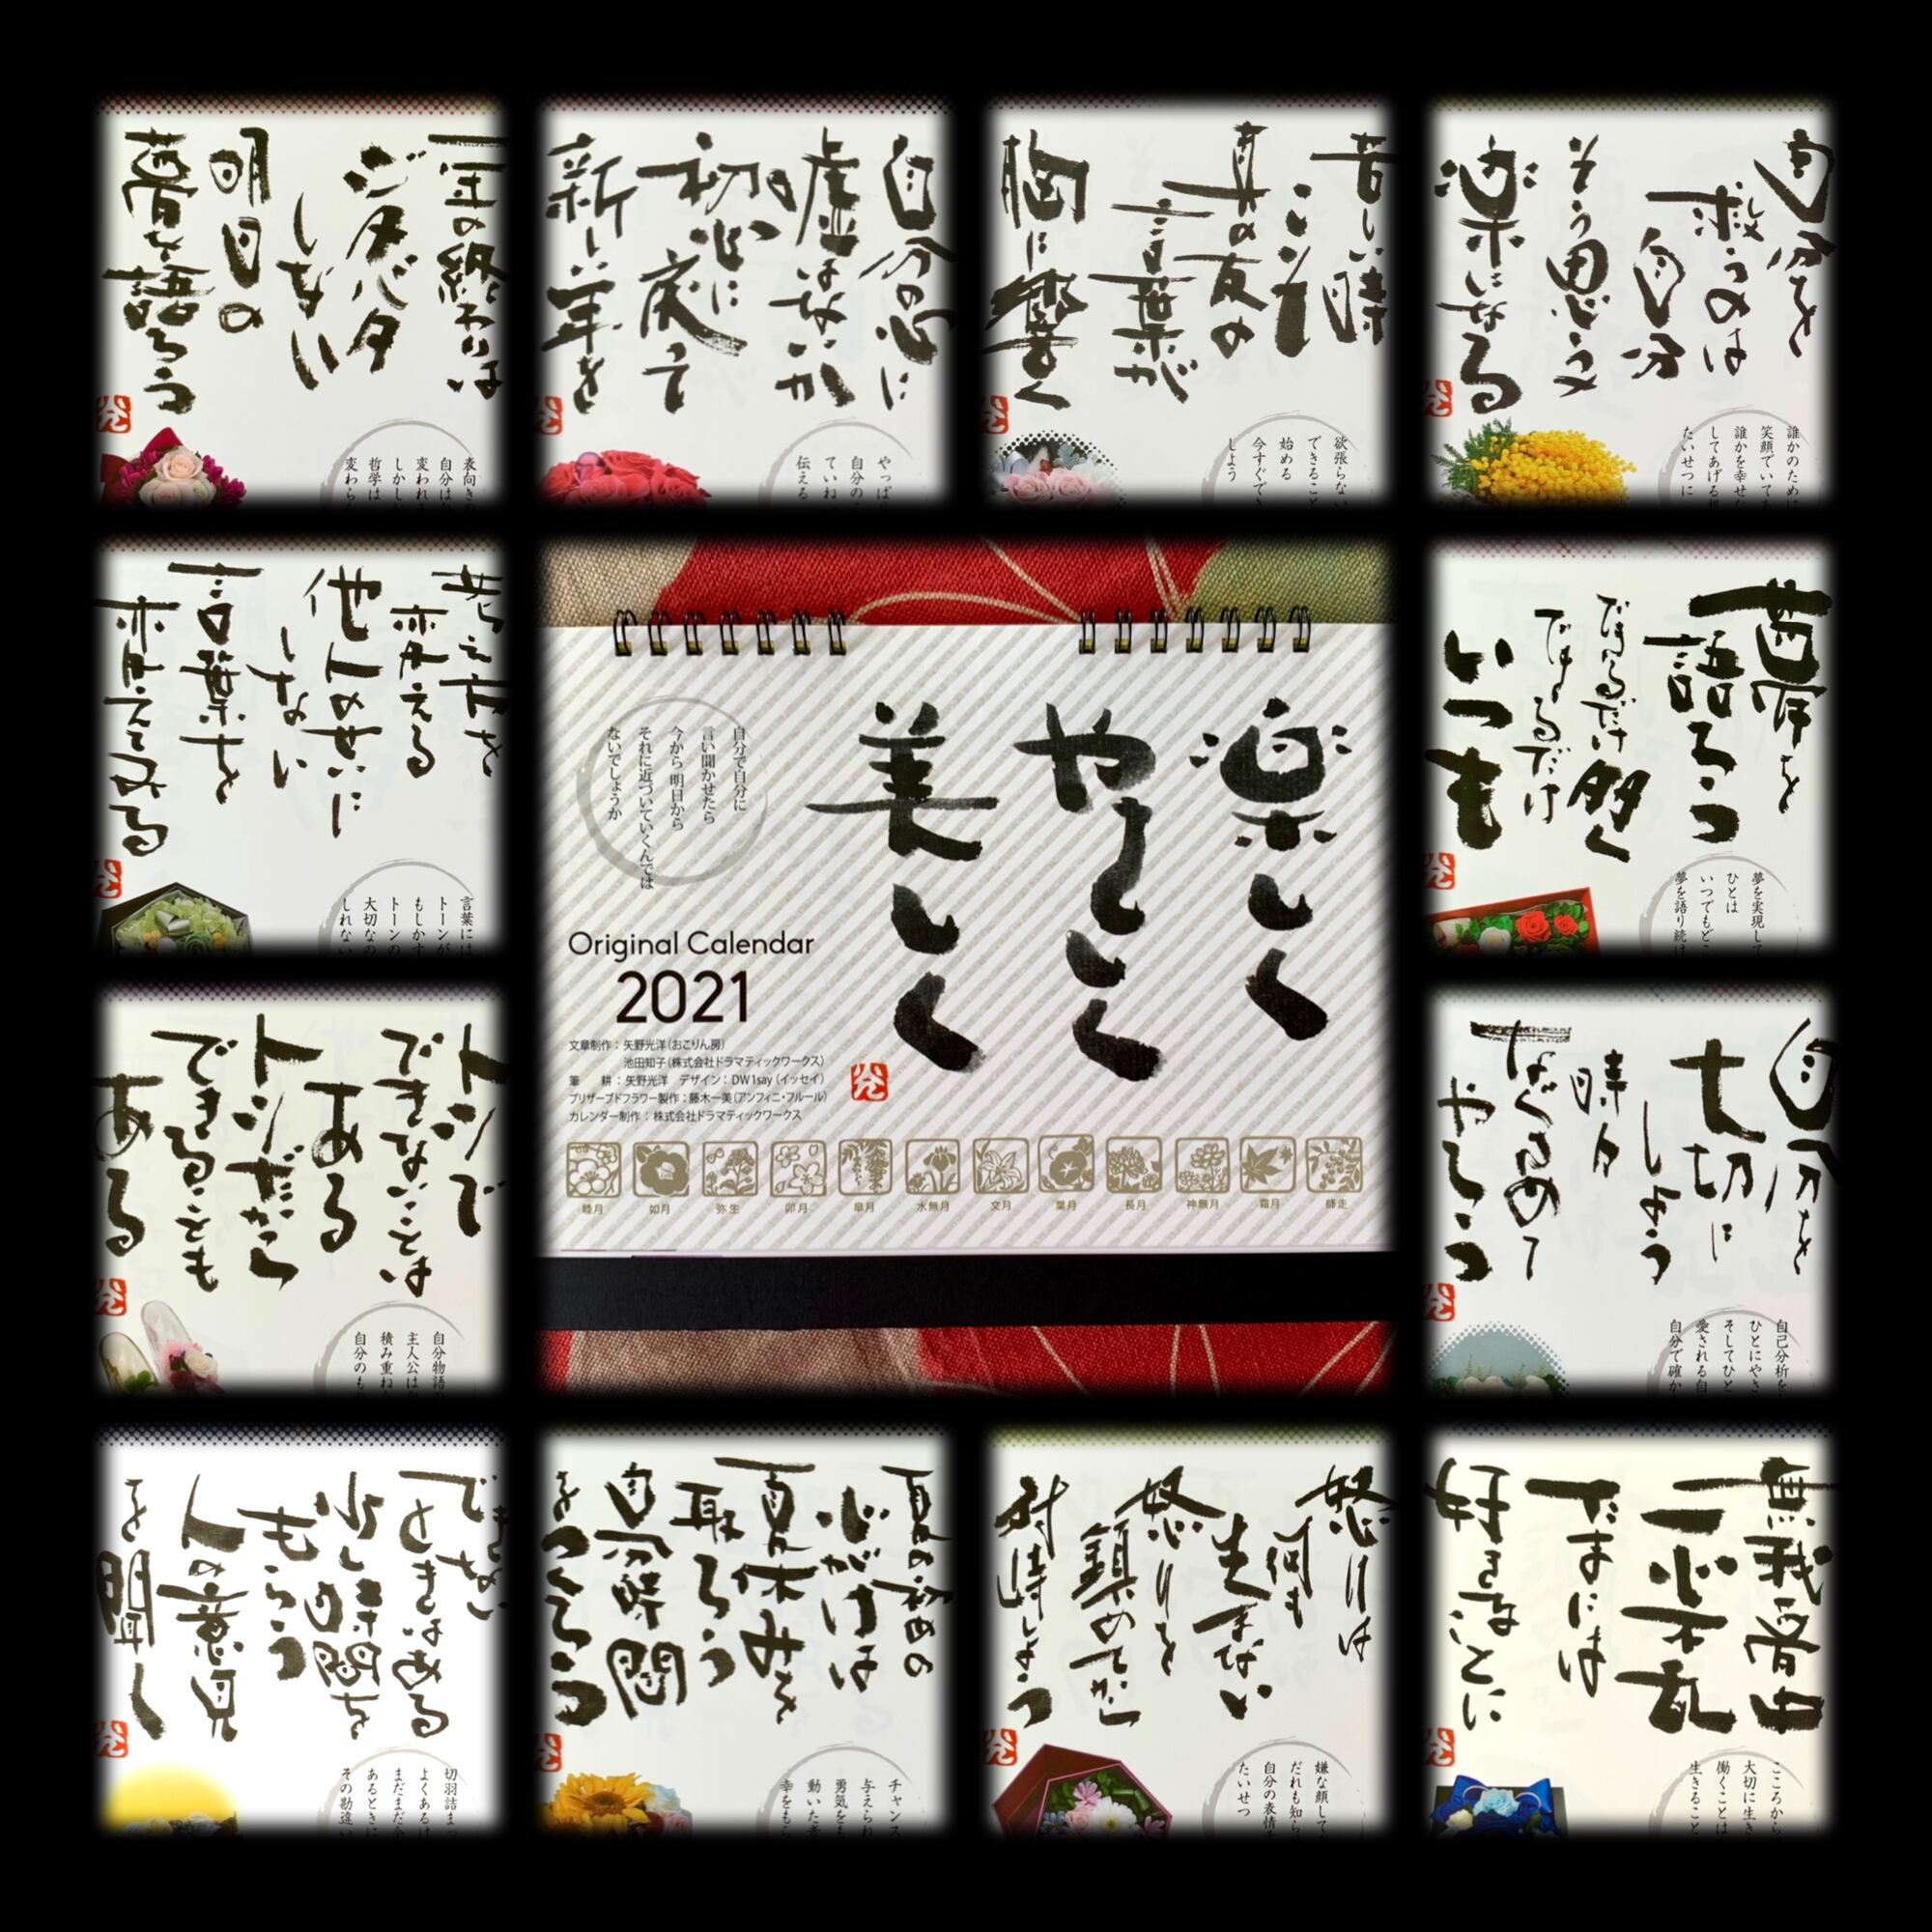 一年の終わりは
ジタバタ
しない
明日の
夢を語ろう
表向き
自分は
変われ
しかし
哲学は
変わらな
自分の心に
虚はないか
初心に
戻って
新しい年を
やっぱり
自分の
ていね
伝える
苦しい時
こそ
真の友の
言葉が
胸に響く
欲張らない
できること
始める
今すぐでき
しよう
自分を
救うのは
自分
そう思うと
楽になる
誰かのために
笑顔でいても
誰かを幸せな
してあげる
たいせつに
考え方を
変える
他人のせいに
しない
言葉を
変えてみる
言葉には
トーンが
もしかす
トーンの
大切なの
しれない
楽しく
やさしく
美しく
自分で自分に
言い聞かせたら
今から 明日から
それに近づいていくんでは
ないでしょうか
Original Calendar
2021
文章制作：矢野光洋（おこりん房）
池田知子（株式会社ドラマティックワークス）
筆　耕：矢野光洋　デザイン：DW1say（イッセイ）
プリザーブドフラワー製作：藤木一美（アンフィニ・フルール）
カレンダー制作：株式会社ドラマティックワークス
睦月
如月
弥生
卯月
皐月
水無月
文月
葉月
長月
神無月
霜月
師走
夢を
語ろう
できるだけ多く
できるだけ
いつも
夢を実現して
ひとは
いつでもどこ
夢を語り続け
トシで
できないことは
ある
トシだから
できることも
ある
自分物語
主人公は
積み重ね
自分のも
自分を
大切に
しよう
時々
なぐさめて
やろう
自己分析を
ひとにやさ
そしてひと
愛される自
自分で確か
できない
ときはある
少し時間を
もらう
人の意見
を聞く
切羽詰ま
よくあるは
まだまだ余
あるときに
その勘違い
夏の初めの
心がけは
夏休みを
取ろう
自分時間
をつくろう
チャンス
与えられ
勇気をも
動いた者
幸をもら
怒りは
何も
生まない
怒りを
鎮めてから
対峙しよう
嫌な顔して
だれも知ら
自分の表情
たいせつ
無我夢中
一心不乱
たまには
好きなことに
こころから
大切に生き
働くことは
生きること